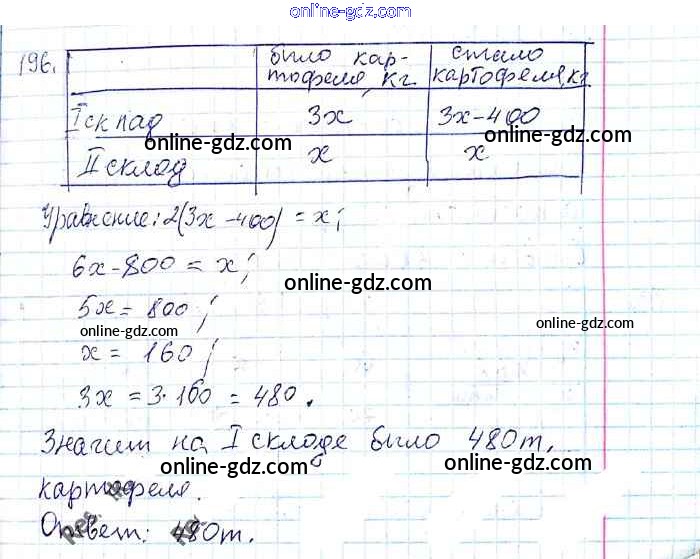 online-gdz.com
196.
было кар-
тофеля, кг
стало
картофеля, кг
I склад
3x
3x-400
online-gdz.com
online-gdz.com
II склад
x
x
Уравнение: 2(3x-400) = x;
6x-800 = x;
online-gdz.com
5x = 800;
online-gdz.com
online-gdz.com
x = 160;
3x = 3·160 = 480.
Значит на I складе было 480т,
online-gdz.com
online-gdz.com
картофеля.
Ответ: 480т.